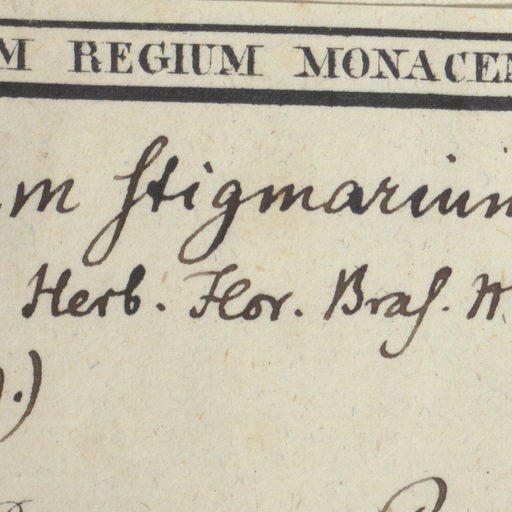 M REGIUM MONACEN
m stigmarium
Herb. Flor. Bras. N
.)